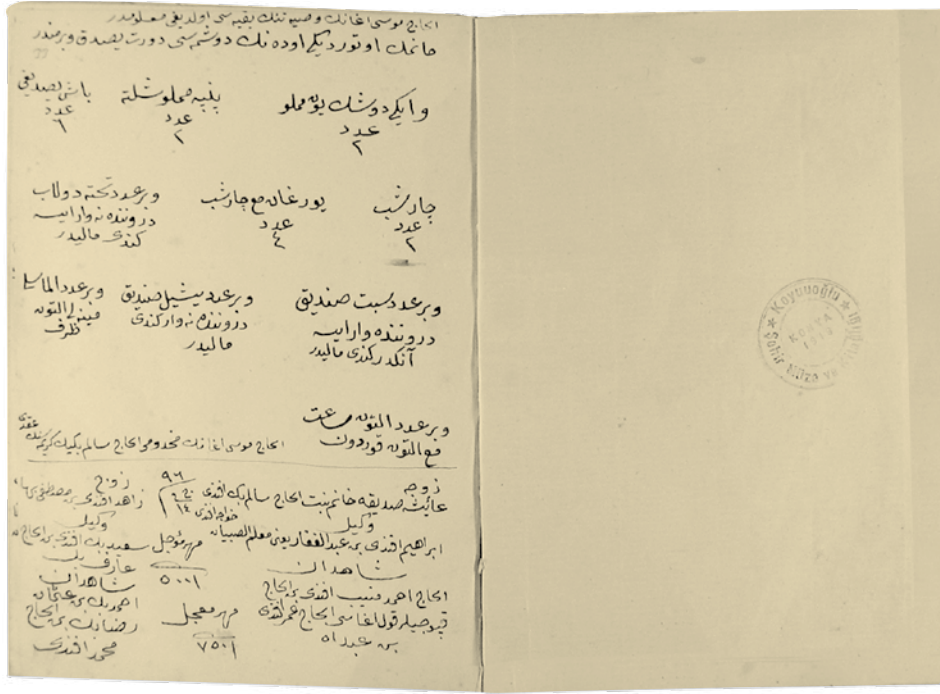 الحاج موسى اغانك وصيه تنك بقيه سى اولديغى معلومدر
خانمك اوتورديكى اوده نك دوشمه سى دورت يصدق وبر مندر
وايكى دوشك يوك مملو
عدد
٢
پنبه مملو شلته
عدد
٢
باش يصديغى
عدد
٦
چارشب
عدد
٢
يورغان مع چارشب
عدد
٤
وبر عدد تخته دولاب
دروننده نه وارايسه
كندى ماليدر
وبر عدد سبت صنديق
دروننده وارايسه
آنكدر كندى ماليدر
وبر عدد يشيل صنديق
دروننده نه وار كندى
ماليدر
وبر عدد الماسلى
مينه لى التون
ظرف
وبر عدد التون ساعت
مع التون قوردون
الحاج موسى اغانك مخدومى الحاج سالم بكيك كريمه سنك عقدى
زوجه
عائشه صديقه خانم بنت الحاج سالم بك افندى
وكيل
ابراهيم افندى بن عبد الغفار يعنى معلم الصبيان
شاهدان
الحاج احمد منيب افندى بن الحاج
قپوجيلر قول اغاسى الحاج عمر افندى
بن عبد الله
٩٦
خواجه افندى
١٤
مهر مؤجل
٥٠٠١
مهر معجل
٧٥٠١
زوج
زاهد افندى بن مصطفى
وكيل
سعيد بك افندى بن الحاج
عارف بك
شاهدان
احمد بك بن عثمان
رضا بك بن الحاج
محمد افندى
Koyunoğlu
KONYA
Şehir Müze ve